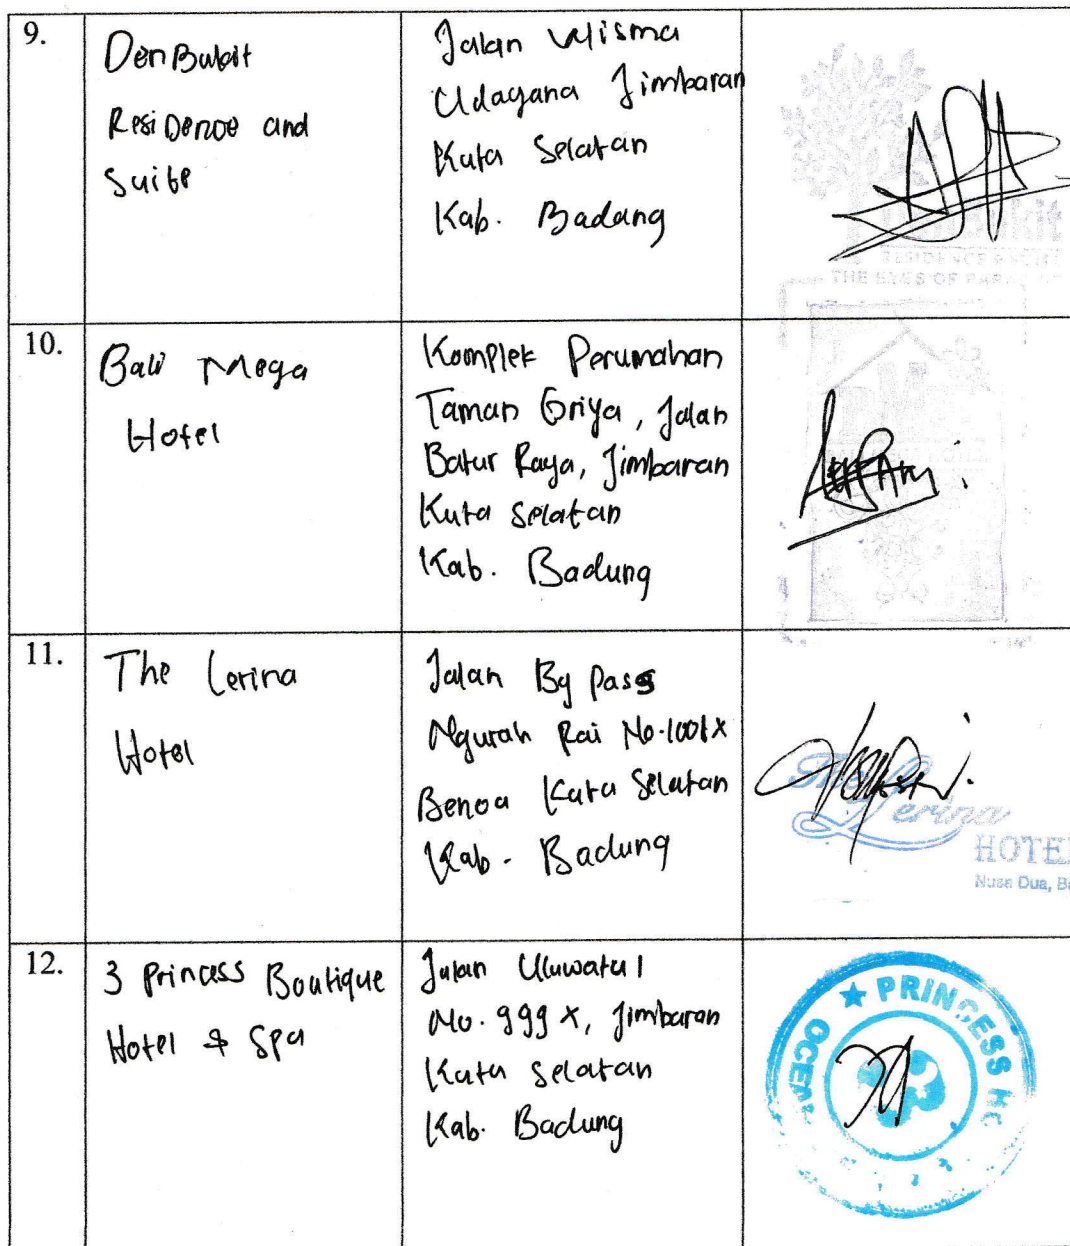 9.
DenBukit
Residence and
Suite
Jalan Wisma
Udayana Jimbaran
Kuta Selatan
Kab. Badung
RESIDENCE & SUITE
THE EYES OF
10.
Bali Mega
Hotel
Komplek Perumahan
Taman Griya, Jalan
Batur Raya, Jimbaran
Kuta Selatan
Kab. Badung
11.
The Lerina
Hotel
Jalan By Pass
Ngurah Rai No.100 X
Benoa Kuta Selatan
Kab. Badung
The Lerina
HOTEL
Nusa Dua, Ba
12.
3 Princess Boutique
Hotel & Spa
Jalan Uluwatu 1
No. 999 X, Jimbaran
Kuta Selatan
Kab. Badung
OCEA ★ PRINCESS HO